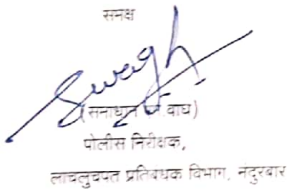 समक्ष
Swagh
(सनाधान वाघ)
पोलीस निरीक्षक,
लाचलुचपत प्रतिबंधक विभाग, नंदुरबार